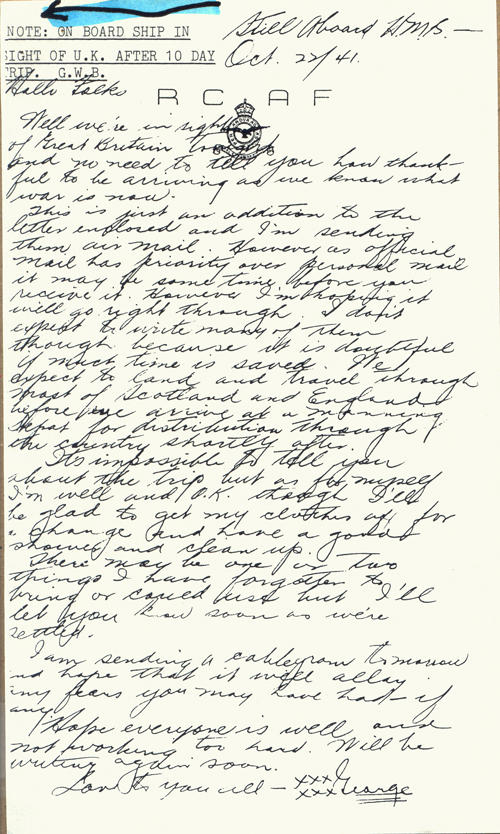 NOTE: ON BOARD SHIP IN
SIGHT OF U.K. AFTER 10 DAY
TRIP. G.W.B.
Still Aboard H.M.S. —
Oct. 22/41.
Hello Folks
RCAF
Well we're in sight
of Great Britain tonight
and no need to tell you how thank-
ful to be arriving as we know what
war is now.
This is just an addition to the
letter enclosed and I'm sending
them air mail. However as official
mail has priority over personal mail
it may be some time before you
receive it. However I'm hoping it
will go right through. I don't
expect to write many of them
though because it is doubtful
if much time is saved. We
expect to land and travel through
most of Scotland and England
before we arrive at a manning
depot for distribution through
the country shortly after.
Its impossible to tell you
about the trip but as for myself
I'm well and O.K. though I'll
be glad to get my clothes off for
a change and have a good
shower and clean up.
There may be one or two
things I have forgotten to
bring or could use but I'll
let you know soon as we're
settled.
I am sending a cablegram tomorrow
and hope that it will allay
any fears you may have had — if
any.
Hope everyone is well and
not working too hard. Will be
writing again soon.
Love to you all — xxx George
xxx